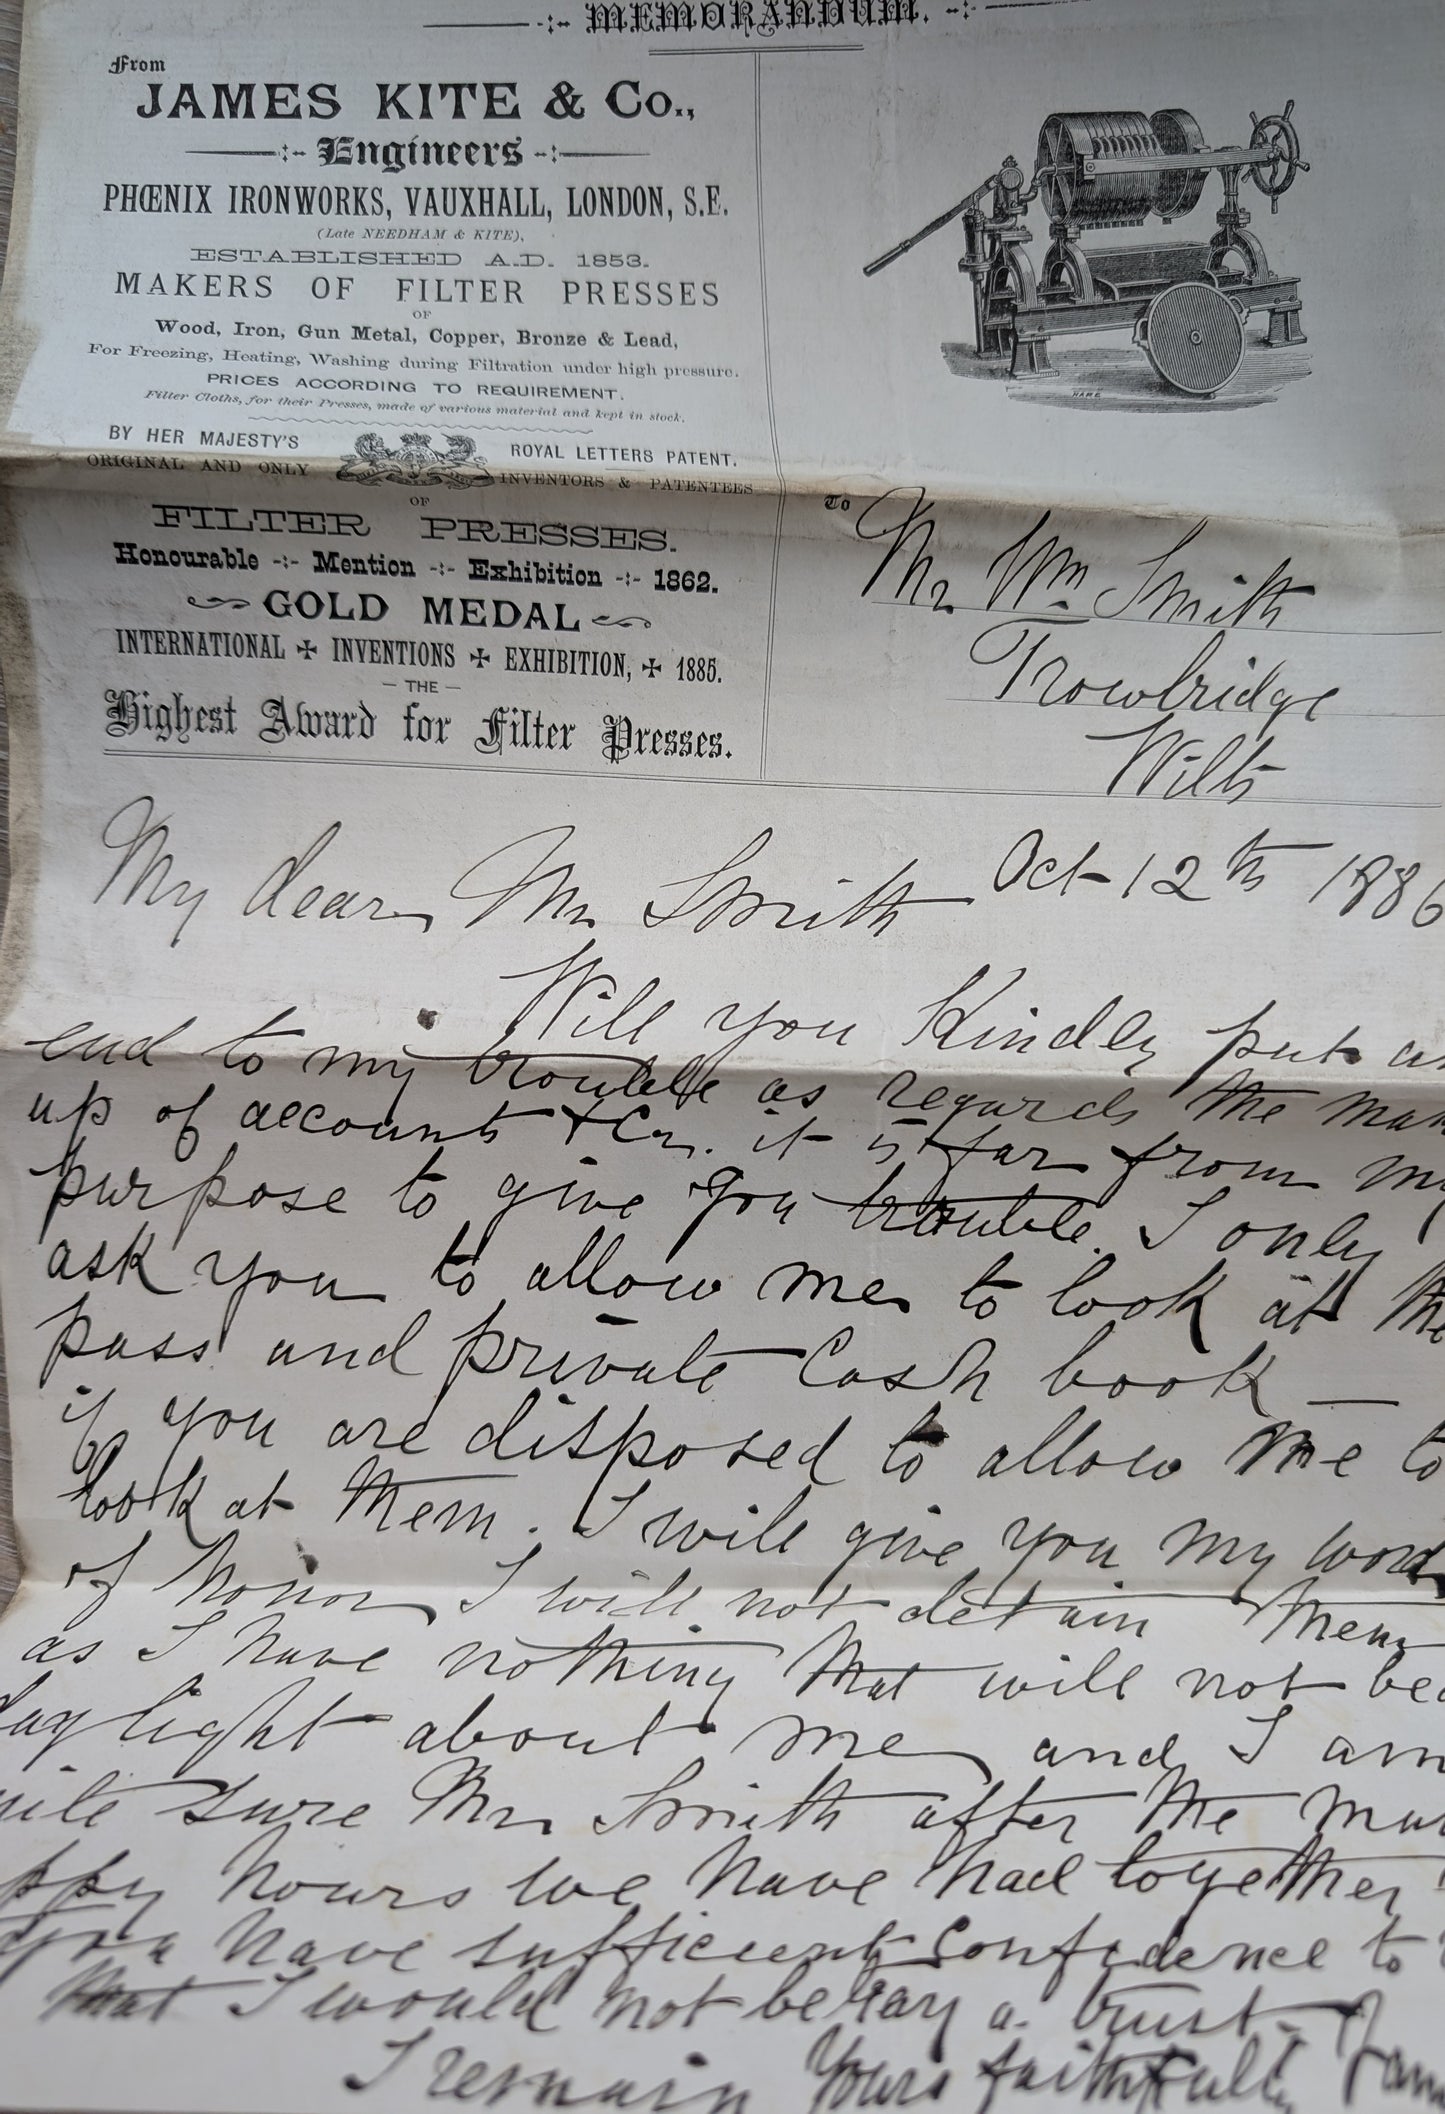 -:- MEMORANDUM. -:-
From
JAMES KITE & Co.,
-:- Engineers -:-
PHŒNIX IRONWORKS, VAUXHALL, LONDON, S.E.
(Late NEEDHAM & KITE),
ESTABLISHED A.D. 1853.
MAKERS OF FILTER PRESSES
OF
Wood, Iron, Gun Metal, Copper, Bronze & Lead,
For Freezing, Heating, Washing during Filtration under high pressure.
PRICES ACCORDING TO REQUIREMENT.
Filter Cloths, for their Presses, made of various material and kept in stock.
BY HER MAJESTY'S ROYAL LETTERS PATENT.
ORIGINAL AND ONLY INVENTORS & PATENTEES
OF
FILTER PRESSES.
Honourable -:- Mention -:- Exhibition -:- 1862.
GOLD MEDAL
INTERNATIONAL ✠ INVENTIONS ✠ EXHIBITION, ✠ 1885.
— THE —
Highest Award for Filter Presses.
HARE
To Mr Wm Smith
Trowbridge
Wilts
Oct 12th 1886
My dear Mr Smith
Will you Kindly put an
end to my trouble as regards the
up of accounts it is far from my
purpose to give you trouble. I only
ask you to allow me to look at the
pass and private Cash book —
if you are disposed to allow me to
look at them. I will give you my word
of honor I will not detain them
as I have nothing that will not
daylight about me and I am
sure Mr Smith after the
hours we have had together
you have sufficient confidence to
that I would not betray a trust.
I remain Yours faithfully